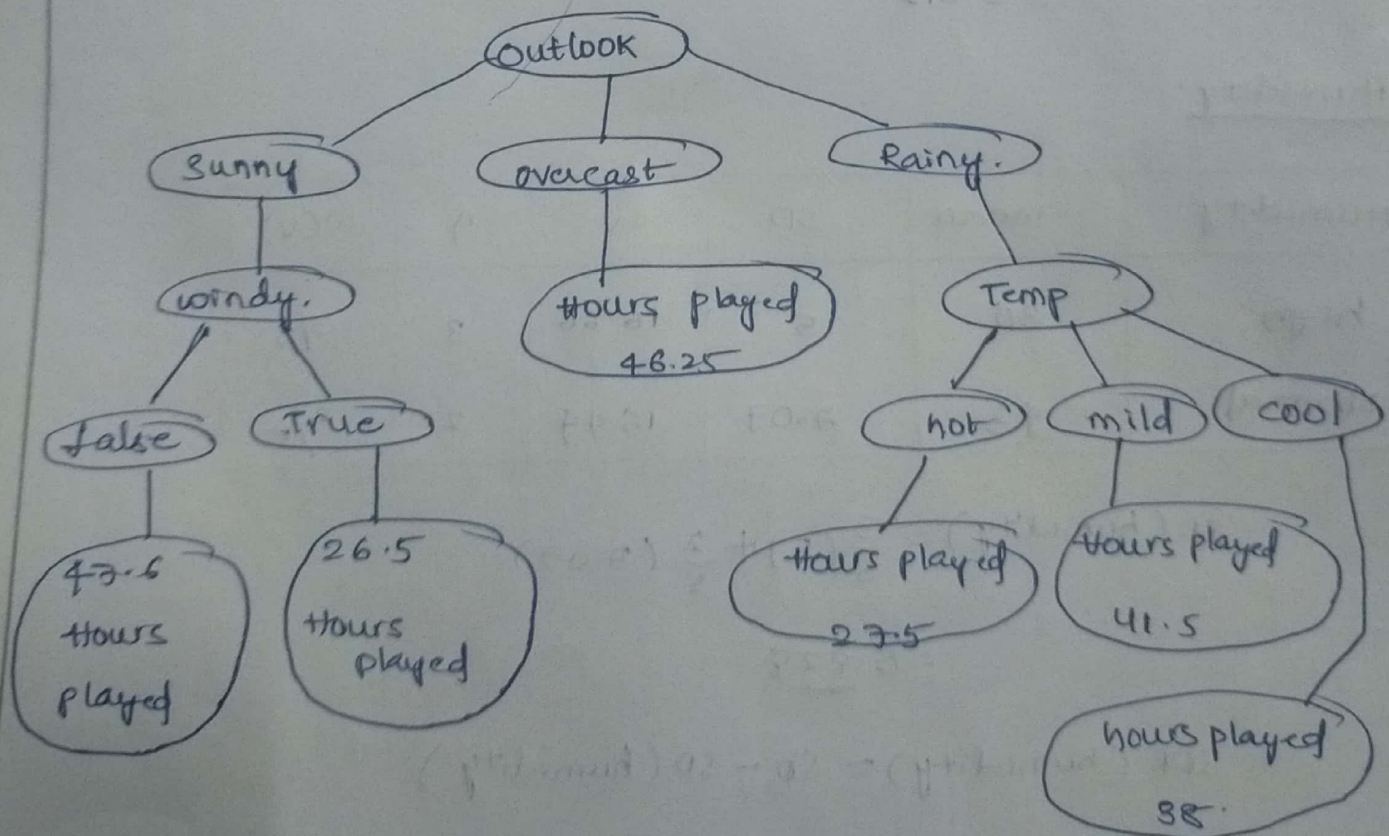 Outlook
Sunny
overcast
Rainy.
windy.
Hours played
46.25
Temp
false
True
hot
mild
cool
47.6
Hours
played
26.5
Hours
played
Hours played
27.5
Hours played
41.5
hours played
38.